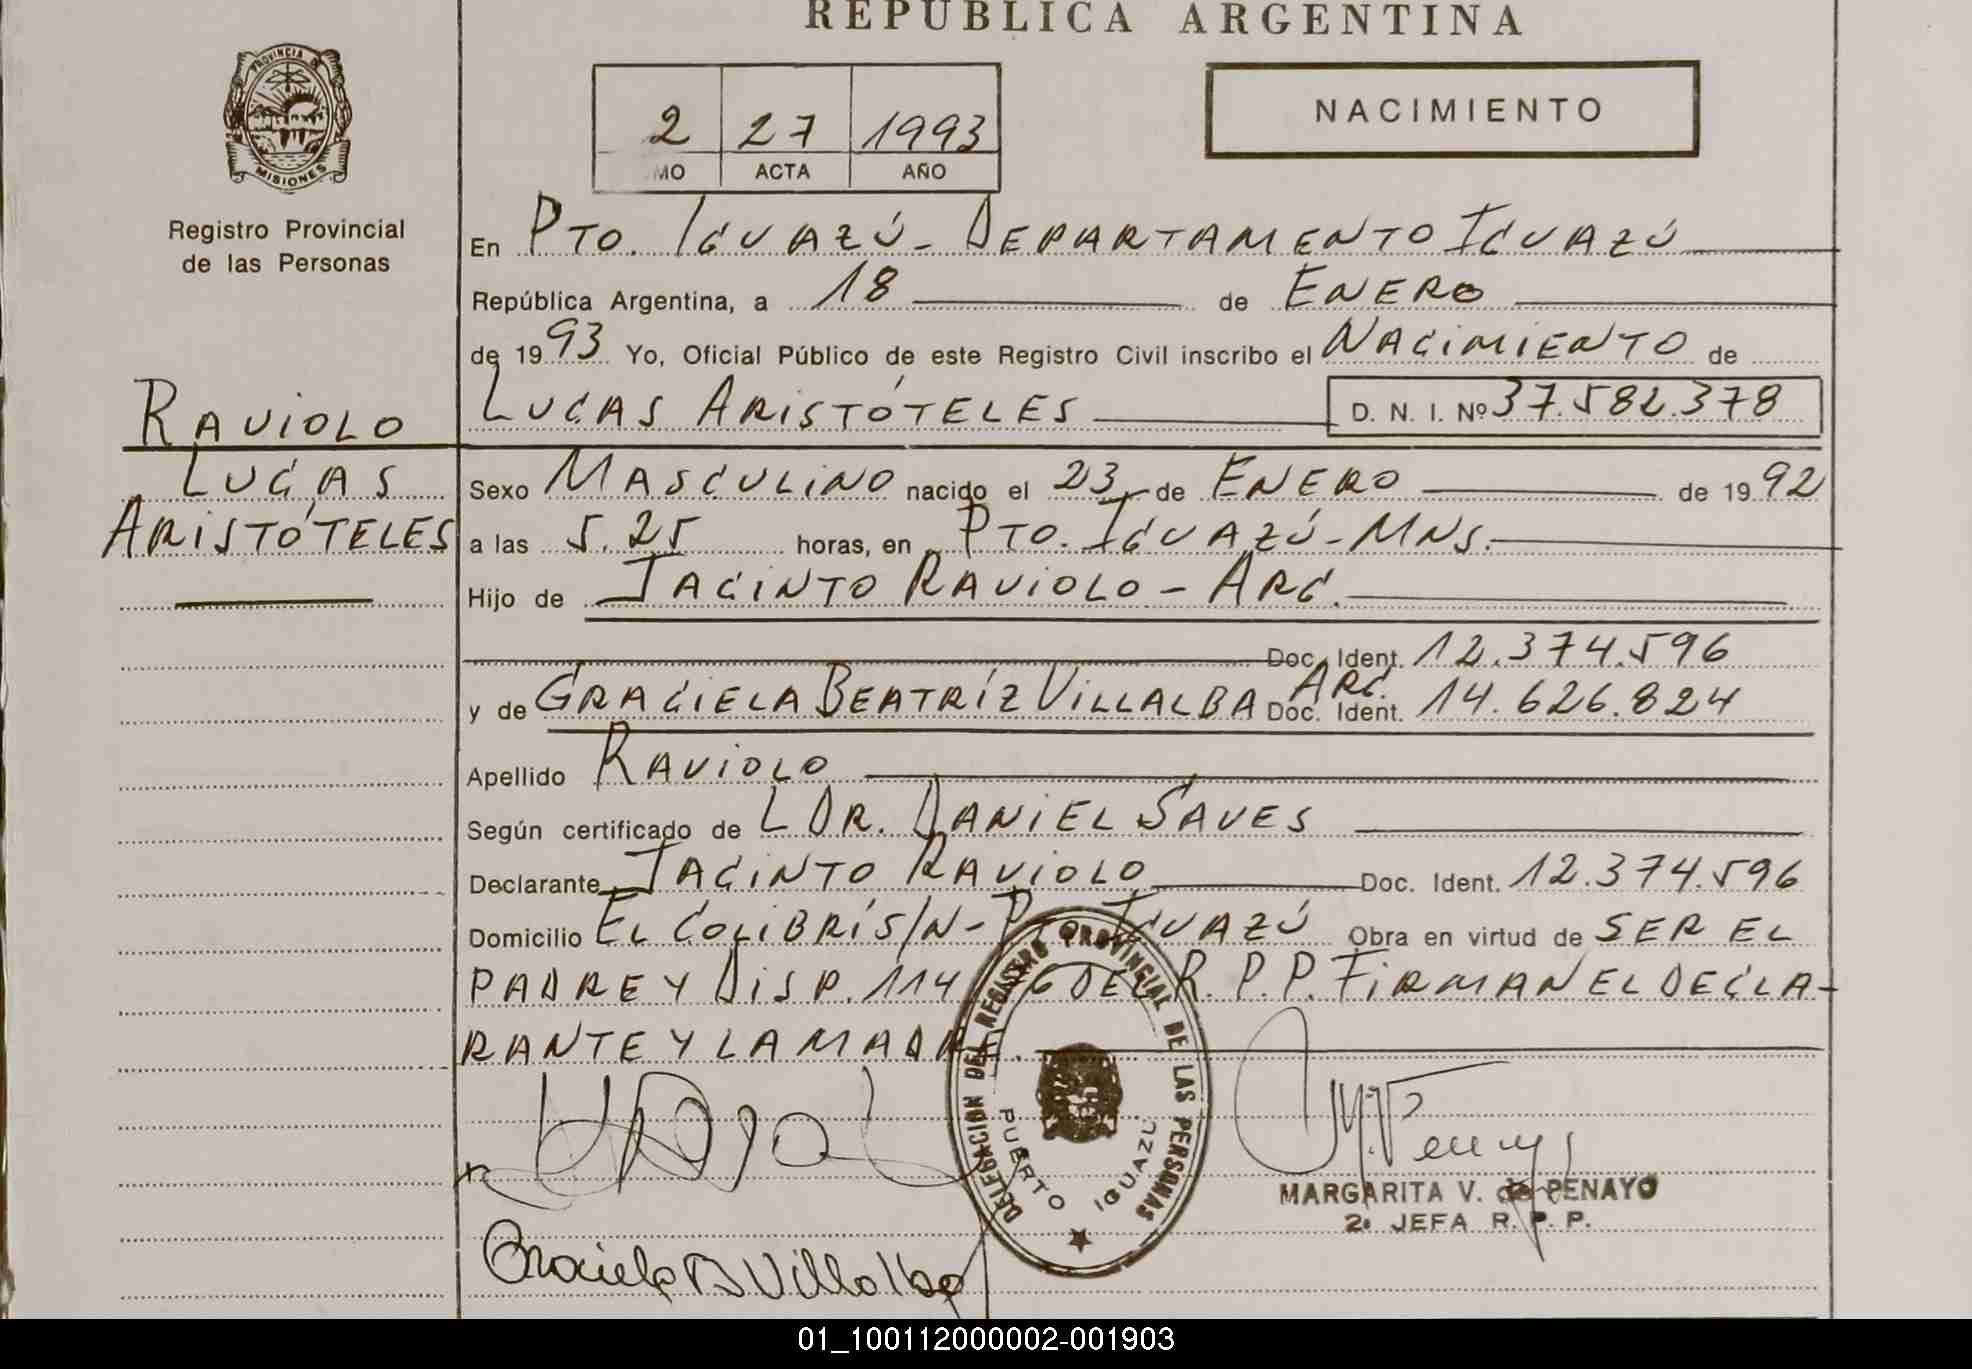 REPUBLICA ARGENTINA
PROVINCIA DE
MISIONES
Registro Provincial
de las Personas
2 27 1993
MO ACTA AÑO
NACIMIENTO
En PTO. IGUAZÚ - DEPARTAMENTO IGUAZÚ
República Argentina, a 18 de ENERO
de 1993 Yo, Oficial Público de este Registro Civil inscribo el NACIMIENTO de
LUCAS ARISTÓTELES D. N. I. Nº 37.582.378
RAVIOLO
LUCAS
ARISTÓTELES
Sexo MASCULINO nacido el 23 de ENERO de 1992
a las 5.25 horas, en PTO. IGUAZÚ - MNS.
Hijo de JACINTO RAVIOLO - ARG.
Doc. Ident. 12.374.596
y de GRACIELA BEATRÍZ VILLALBA ARG. Doc. Ident. 14.626.824
Apellido RAVIOLO
Según certificado de L DR. DANIEL SAVES
Declarante JACINTO RAVIOLO Doc. Ident. 12.374.596
Domicilio EL COLIBRÍ S/N - PTO IGUAZÚ Obra en virtud de SER EL
PADRE Y DISP. 114/76 DEL R. P. P. FIRMAN EL DECLA-
RANTE Y LA MADRE.
DELEGACION DEL REGISTRO PROVINCIAL DE LAS PERSONAS
PUERTO IGUAZU
MARGARITA V. de PENAYO
2a JEFA R. P. P.
Graciela B Villalba
01_100112000002-001903